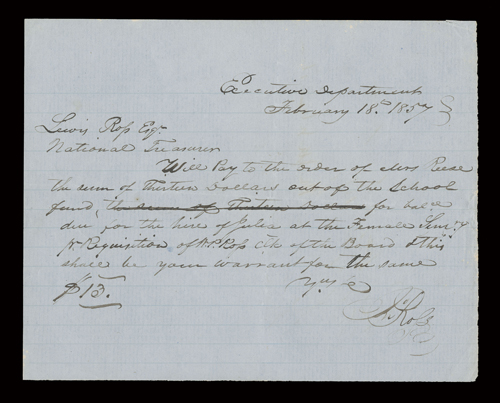 Executive Department
February 18th 1857
Lewis Ross Esqr
National Treasurer
Will Pay to the order of Mrs Reese
the sum of Thirteen Dollars out of the School
fund, the sum of Thirteen dollars for bal
due for the hire of Julia at the Female Semy
pr Requisition of W P Ross Clk of the Board & this
shall be your warrant for the same
$13.
Yrs &c
Jno Ross